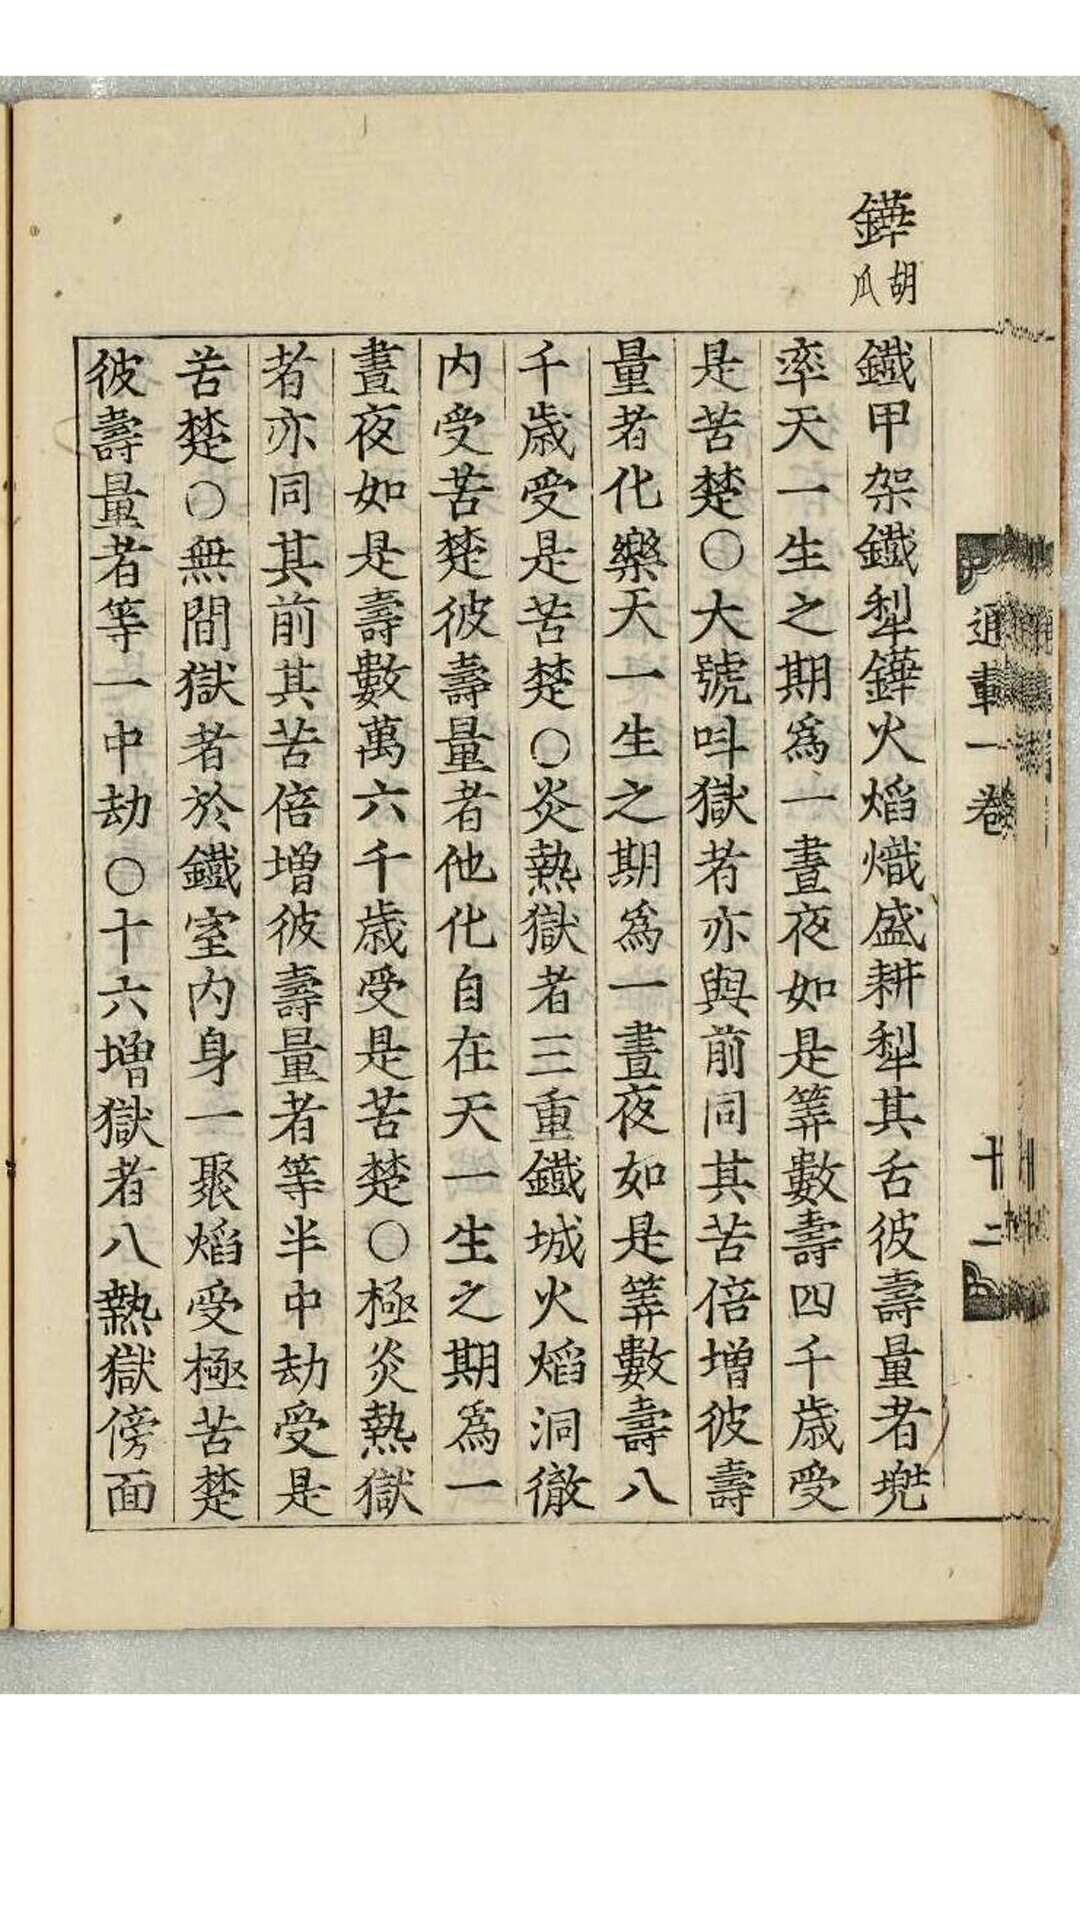 鏵
胡
瓜
鐵甲架鐵犁鏵火焰熾盛耕犁其舌彼壽量者兠
率天一生之期爲一晝夜如是筭數壽四千歲受
是苦楚〇大號叫獄者亦與前同其苦倍增彼壽
量者化樂天一生之期爲一晝夜如是筭數壽八
千歲受是苦楚〇炎熱獄者三重鐵城火焰洞徹
内受苦楚彼壽量者他化自在天一生之期爲一
晝夜如是壽數萬六千歲受是苦楚〇極炎熱獄
者亦同其前其苦倍增彼壽量者等半中劫受是
苦楚〇無間獄者於鐵室内身一聚焰受極苦楚
彼壽量者等一中劫〇十六增獄者八熱獄傍面
通載一卷
十二